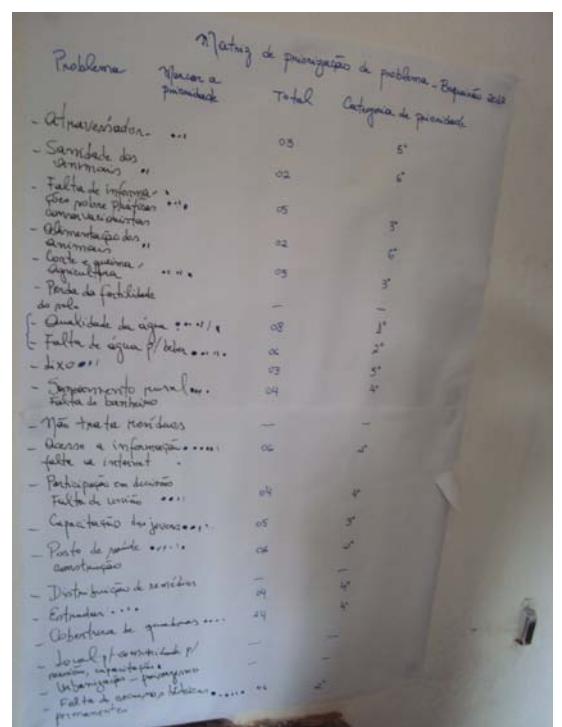 Matriz de priorização de problema - 
Problema Marcar a prioridade Total Categoria de prioridade
- Atravessador 03 5°
- Sanidade dos
animais 02 6°
- Falta de informa-
ções sobre práticas 05 3°
conservacionistas
- Alimentação dos
animais 02 6°
- Corte e queima /
Agricultura 05 3°
- Perda da fertilidade
do solo — —
- Qualidade da água 08 1°
- Falta de água p/ beber 06 2°
- Lixo 03 5°
- Saneamento rural 04 4°
Falta de banheiro
- Não trata resíduos — —
- Acesso a informação 06 2°
falta de internet
- Participação em decisão
Falta de união 04 4°
- Capacitação dos jovens 05 3°
- Posto de saúde 06 2°
construção
- Distribuição de remédios — —
- Estradas 04 4°
- Cobertura de 04 4°
- Local p/ comunidade p/
reunião, capacitação — —
- Urbanização - paisagismo — —
- Falta de recursos hídricos 06 2°
permanentes